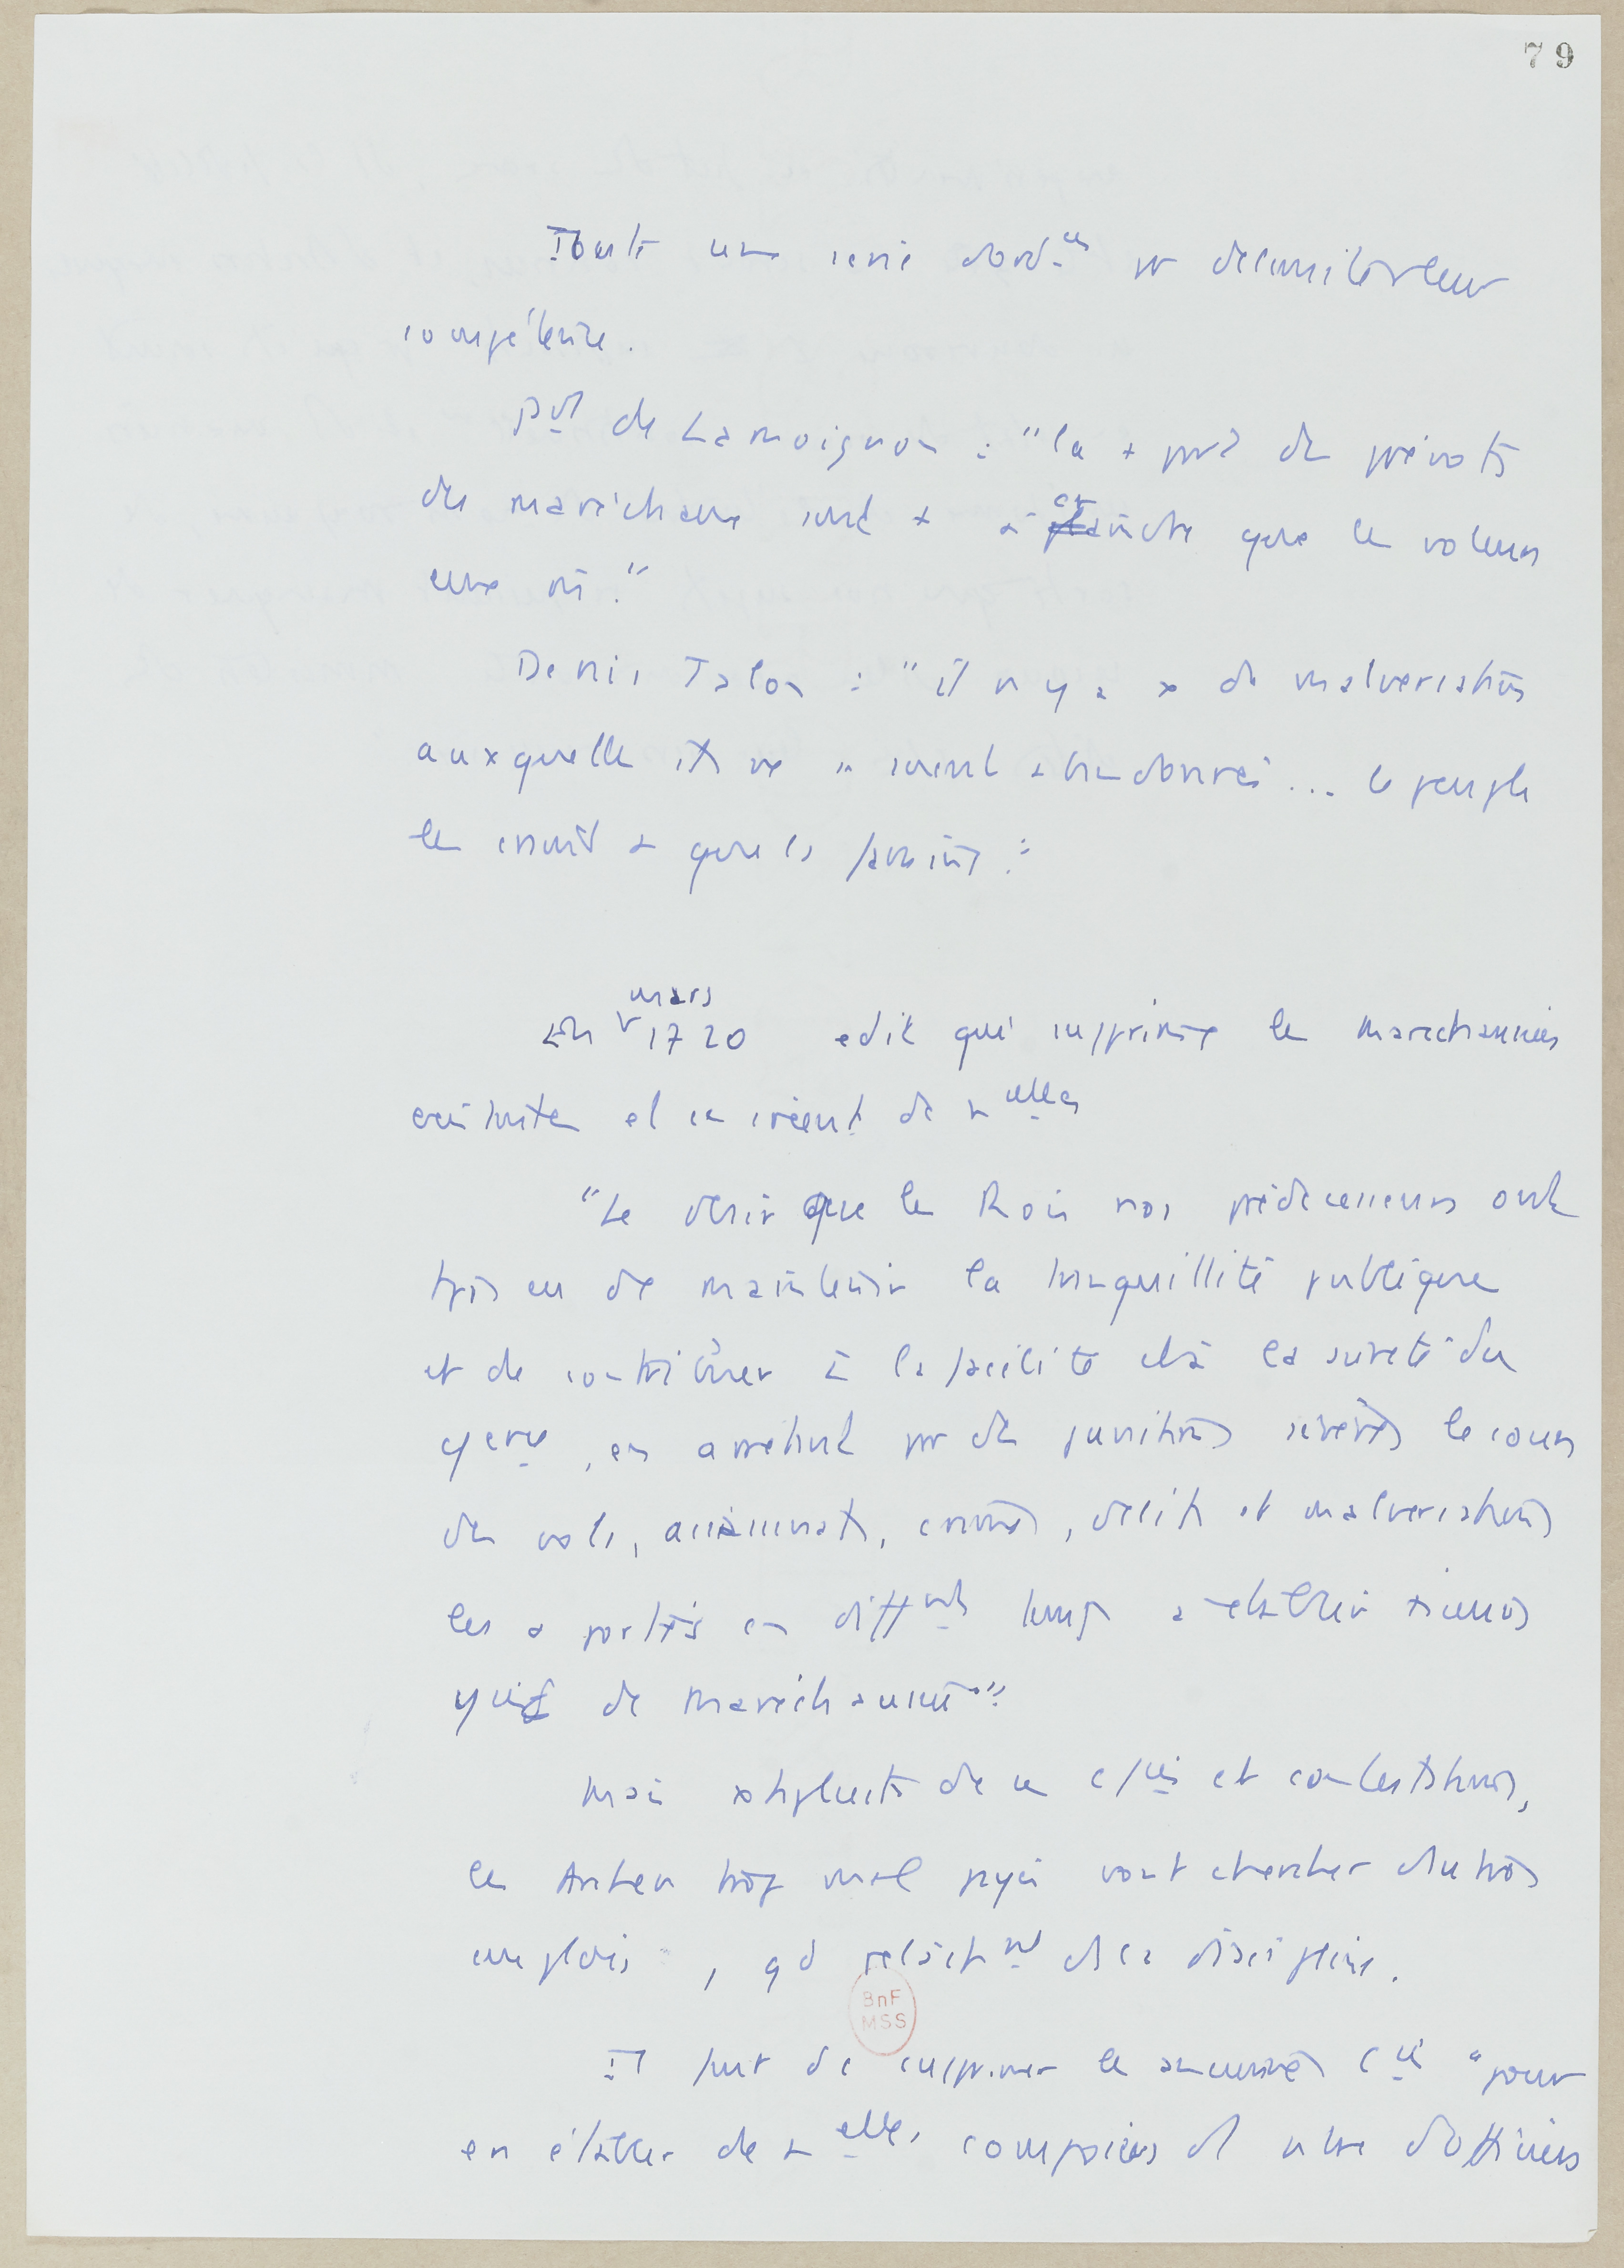 79
Toute une série d'ord.ces pr delimiter leur
compétence.
Pdt de Lamoignon : "la + part des prévots
des maréchaux sont + à craindre que les voleurs
eux m."
Denis Talon : "il n'y a x de malversations
auxquelles ils ne se soient abandonnés ... le peuple
les
En mars 1720 edit qui supprime les marechaussées
existantes et en créent de nelles
"Le désir que les Rois nos prédécesseurs ont
tjrs eu de maintenir la tranquillité publique
et de contribuer à la facilité et à la sureté du
cerce, en arretant par des punitions sévères le cours
des vols, assassinats, crimes, délits et malversations
les a portés en diffents temps à établir plusieurs
cies de maréchaussée"
Mais de ces cies et contestations,
les Archers trop mal payés vont chercher d'autres
emplois, qd relachnt de la discipline.
Il faut dc supprimer les anciennes cies "pour
en établir de nelles composées d'1 nbre d'officiers
BnF
MSS